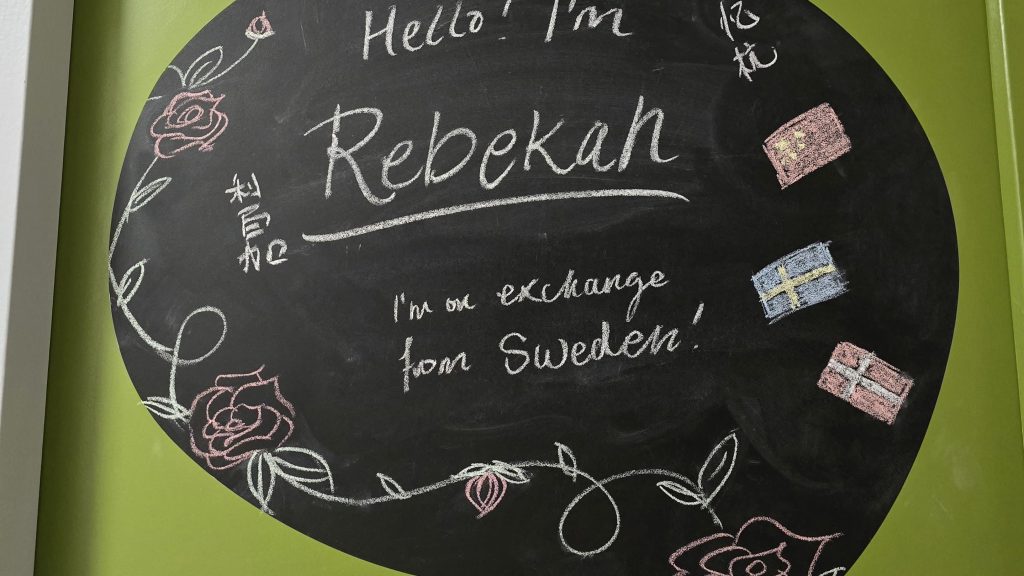 Hello! I'm
Rebekah
I'm on exchange
from Sweden!
利百加
忆
杭